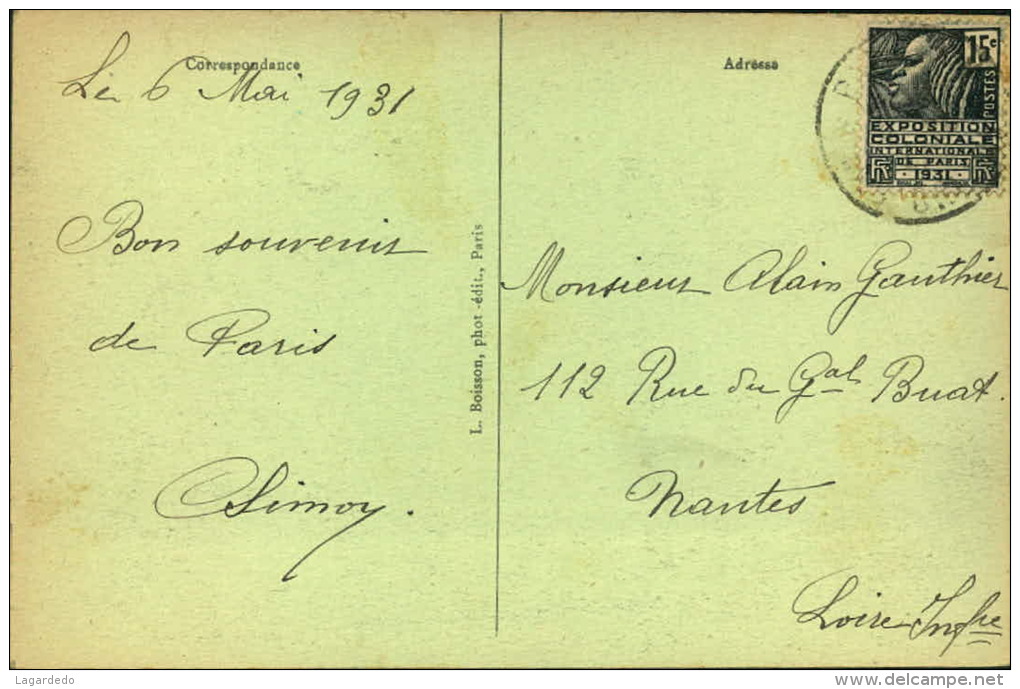 Correspondance
Le 6 Mai 1931
Bon souvenir
de Paris
Simoy.
L. Boisson, phot-édit., Paris
Adresse
15c
POSTES
EXPOSITION
COLONIALE
INTERNATIONALE
DE PARIS
1931
Monsieur Alain Gauthier
112 Rue du Gal Buat.
Nantes
Loire Infre
Lagardedo
www.delcampe.net